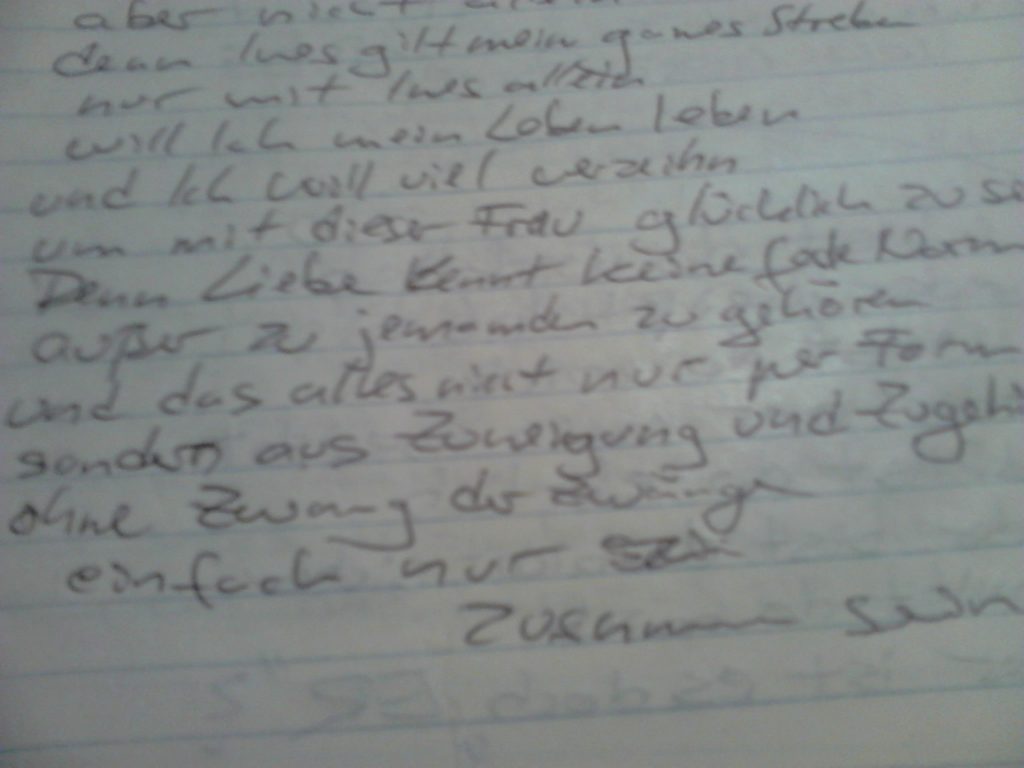 aber nicht allein
denn Ines gilt mein ganzes Streben
nur mit Ines allein
will Ich mein Leben leben
und Ich will viel verzeihn
um mit dieser Frau glücklich zu se
Denn Liebe kennt keine feste Norm
außer zu jemanden zu gehören
und das alles nicht nur per Form
sondern aus Zuneigung und Zugehö
ohne Zwang der Zwänge
einfach nur
zusammen sein